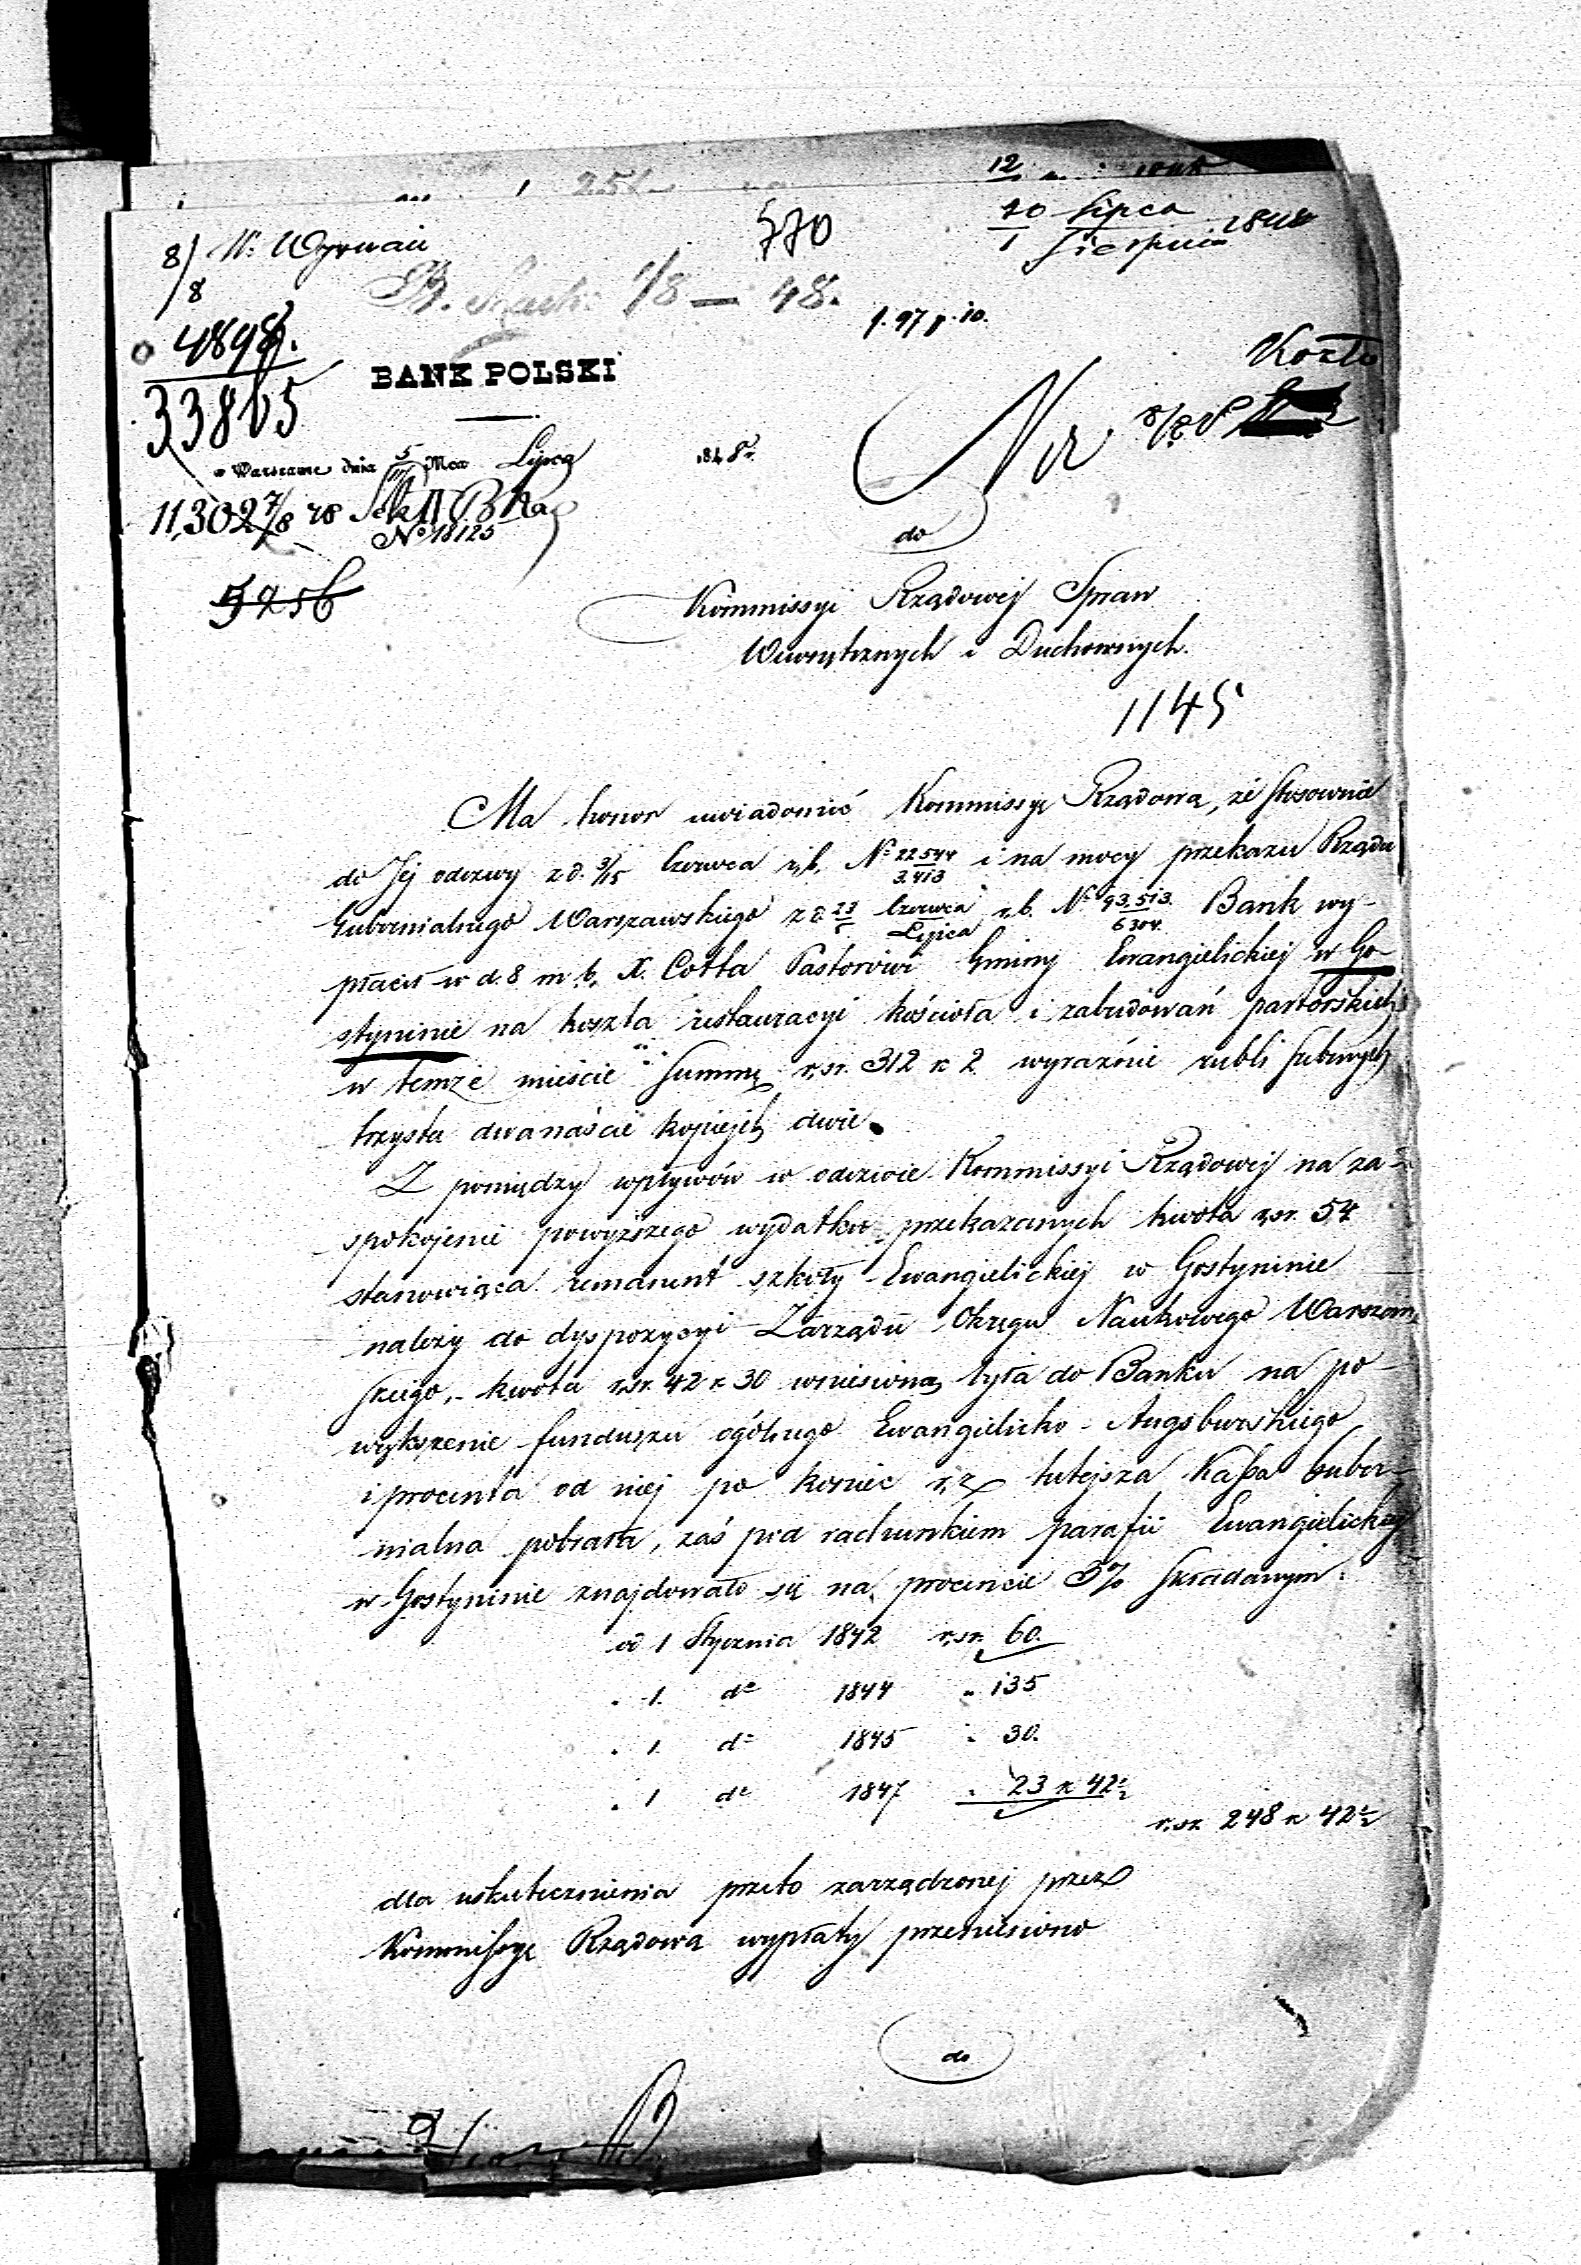 570
20 Lipca
1 Sierpnia 1848
8/8
1/8 — 48.
4898.
33865
f. 97 p. 10.
BANK POLSKI
w Warszawie dnia 5 Mca Lipca 1848 r.
11,302 7/8 48
No 18125
5256
do
Kommissyi Rządowej Spraw
Wewnętrznych i Duchownych.
1145
Ma honor uwiadomić Kommissyę Rządową, że stosownie
do Jej odezwy z d. 3/15 Czerwca r. b. No 22544/3413 i na mocy przekazu Rządu
Gubernialnego Warszawskiego z d. 23 Czerwca/5 Lipca r. b. No 93,513/6304 Bank wy-
płacił w d. 8 m. b. X. Cotta Pastorowi Gminy Ewangielickiej w Go-
styninie na koszta restauracyi kościoła i zabudowań pastorskich
w temże mieście Summę r.sr. 312 k 2 wyraźnie rubli srebrnych
trzysta dwanaście kopiejek dwie.
Z pomiędzy wpływów w odezwie Kommissyi Rządowej na za-
spokojenie powyższego wydatku przekazanych kwota r.sr. 54
stanowiąca remanent szkoły Ewangielickiej w Gostyninie
należy do dyspozycyi Zarządu Okręgu Naukowego Warszaw-
skiego, - kwota r.sr. 42 k 30 wniesioną była do Banku na po-
większenie funduszu ogólnego Ewangielicko - Augsburskiego
i procenta od niej po koniec r. z. tutejsza Kassa Guber-
nialna pobrała, zaś pod rachunkiem parafii Ewangielickiej
w Gostyninie znajdowało się na procencie 3% składanym.
od 1 Stycznia 1842 r.sr. 60.
" 1. do 1844 " 135
" 1 do 1845 " 30.
" 1 do 1847 " 23 k 42½
r.sr. 248 k 42½
dla uskutecznienia przeto zarządzonej przez
Kommissyę Rządową wypłaty przeniesiono
do